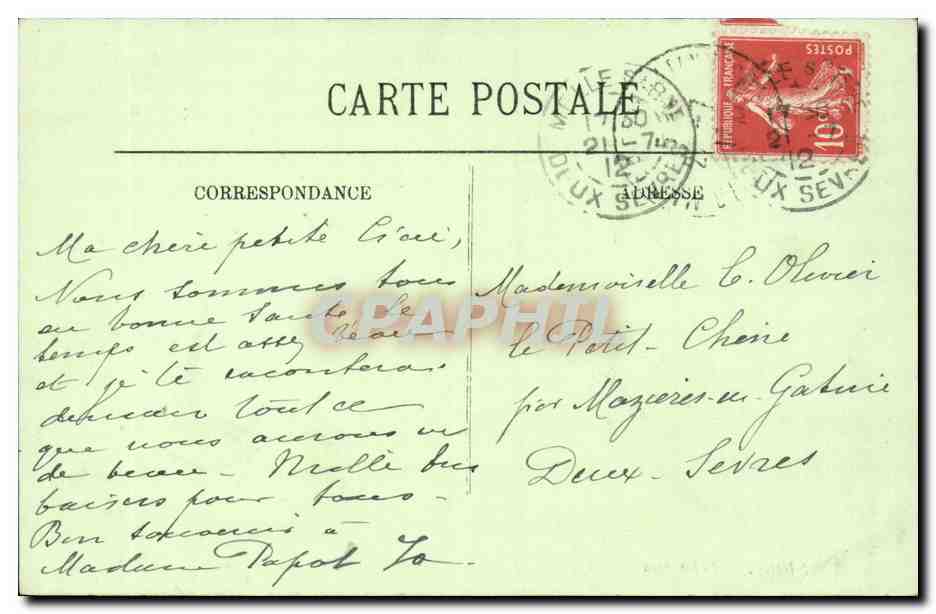 CARTE POSTALE
CORRESPONDANCE
ADRESSE
RÉPUBLIQUE FRANÇAISE
POSTES
10
MELLE
21
12
DEUX SEVRES
Ma chère petite
Nous sommes tous
en bonne santé le
temps est assez beau
et je te raconterai
demain tout ce
que nous aurons vu
de beau - Mille bons
baisers pour tous -
Bon souvenir à
Madame Papot Yo
Mademoiselle C. Olivier
le Petit-Chêne
par Mazières-en-Gatine
Deux-Sèvres
CPAPHIL